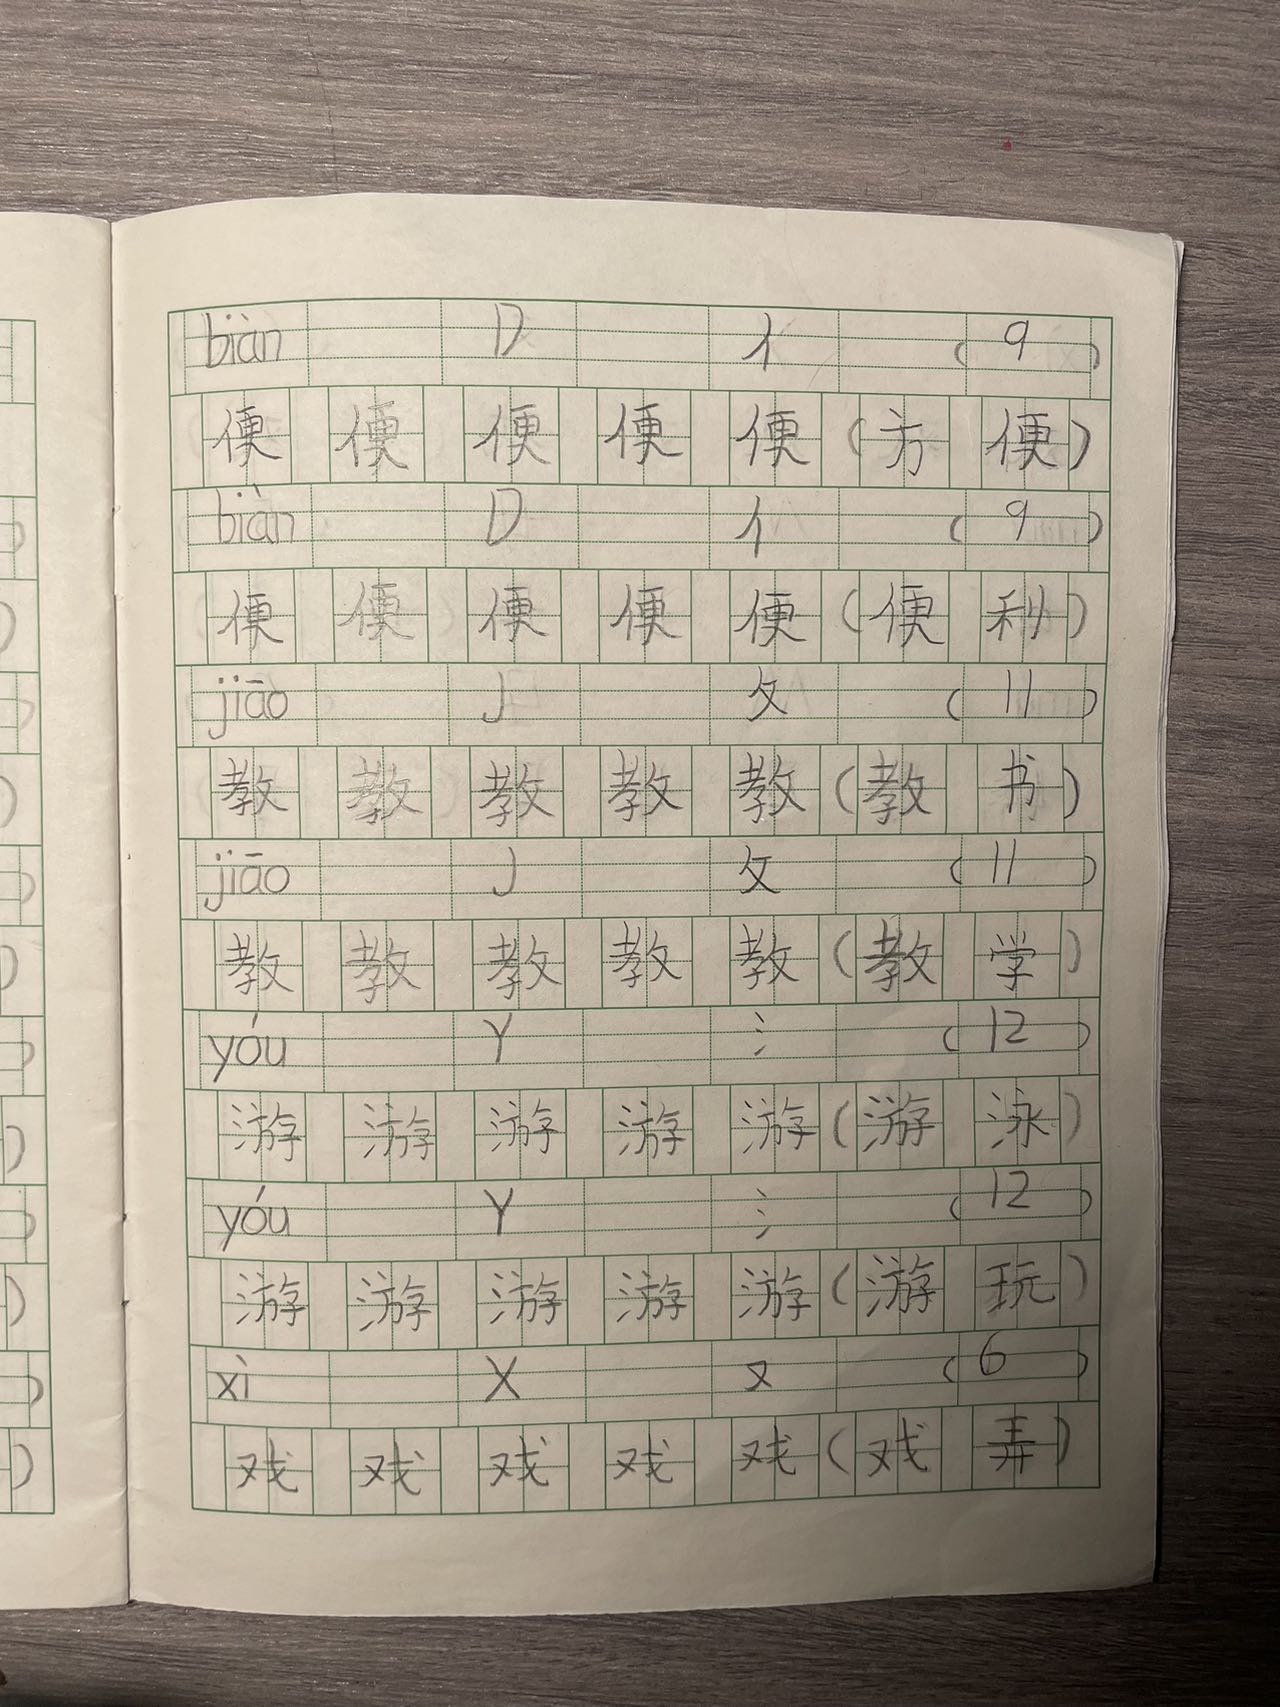 biàn D 亻 ( 9 )
便 便 便 便 便 ( 方 便 )
biàn D 亻 ( 9 )
便 便 便 便 便 ( 便 利 )
jiāo J 攵 ( 11 )
教 教 教 教 教 ( 教 书 )
jiāo J 攵 ( 11 )
教 教 教 教 教 ( 教 学 )
yóu Y 氵 ( 12 )
游 游 游 游 游 ( 游 泳 )
yóu Y 氵 ( 12 )
游 游 游 游 游 ( 游 玩 )
xì X 又 ( 6 )
戏 戏 戏 戏 戏 ( 戏 弄 )